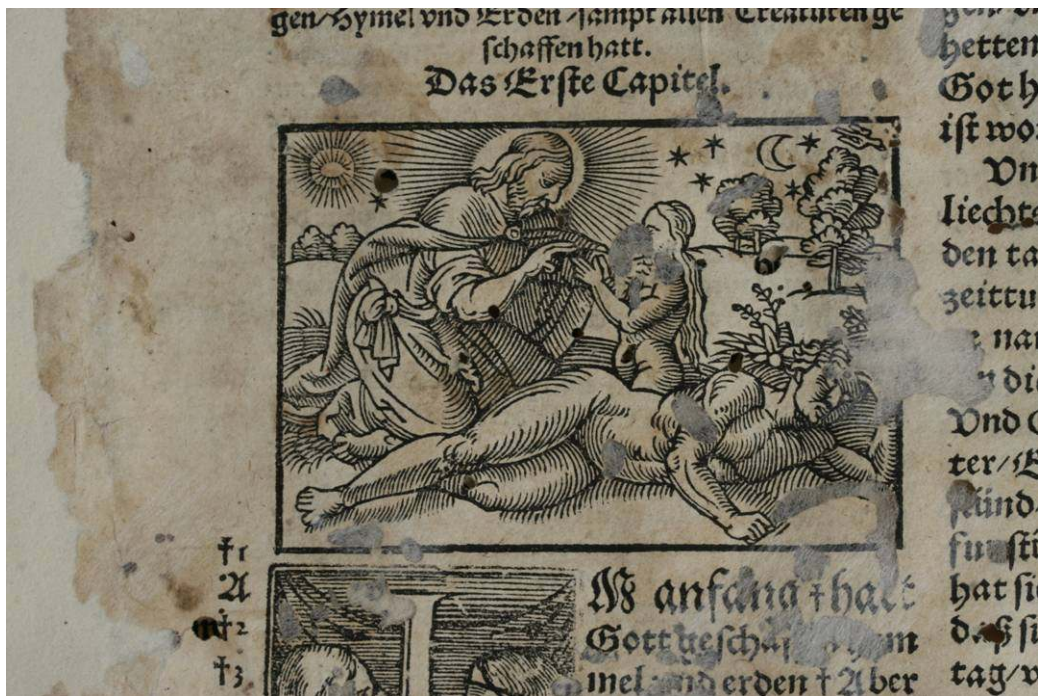 gen/Hymel vnd Erden/sampt allen Creaturen ge
schaffen hatt.
Das Erste Capitel.
†1
A
†2
†3.
IM anfang † hatt
Gott geschaffen hym
mel vnd erden † Aber
hetten
Got h
ist wor
Vn
liecht
den ta
zeittu
nan
die
Vnd G
ter/
hat sie
daß si
tag/v